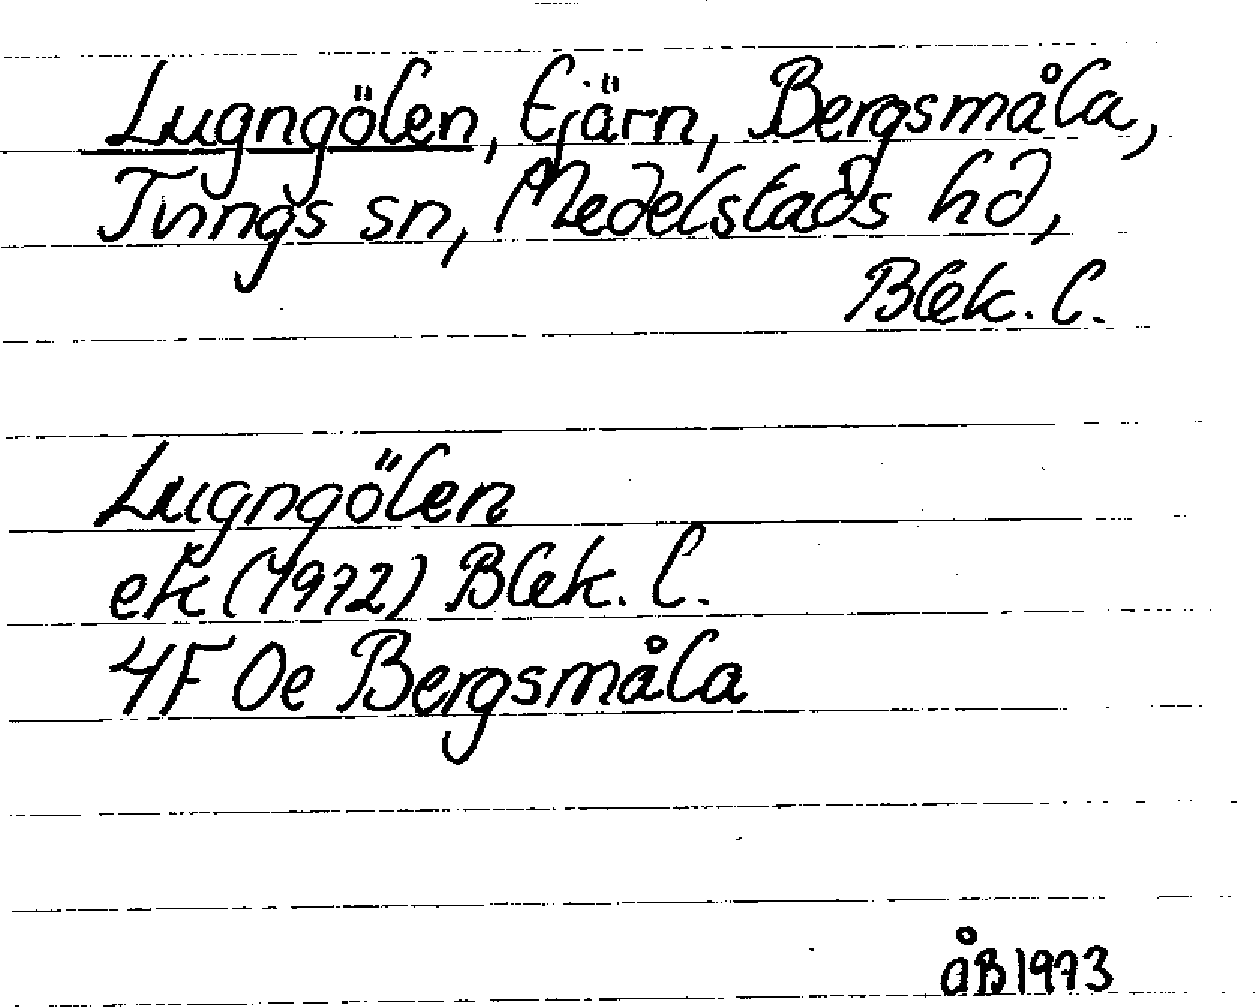 Lugngölen, tjärn, Bergsmåla,
Tvings sn, Medelstads hd,
Blek. l.
Lugngölen
ek (1972) Blek. l.
4F 0e Bergsmåla
åB 1973